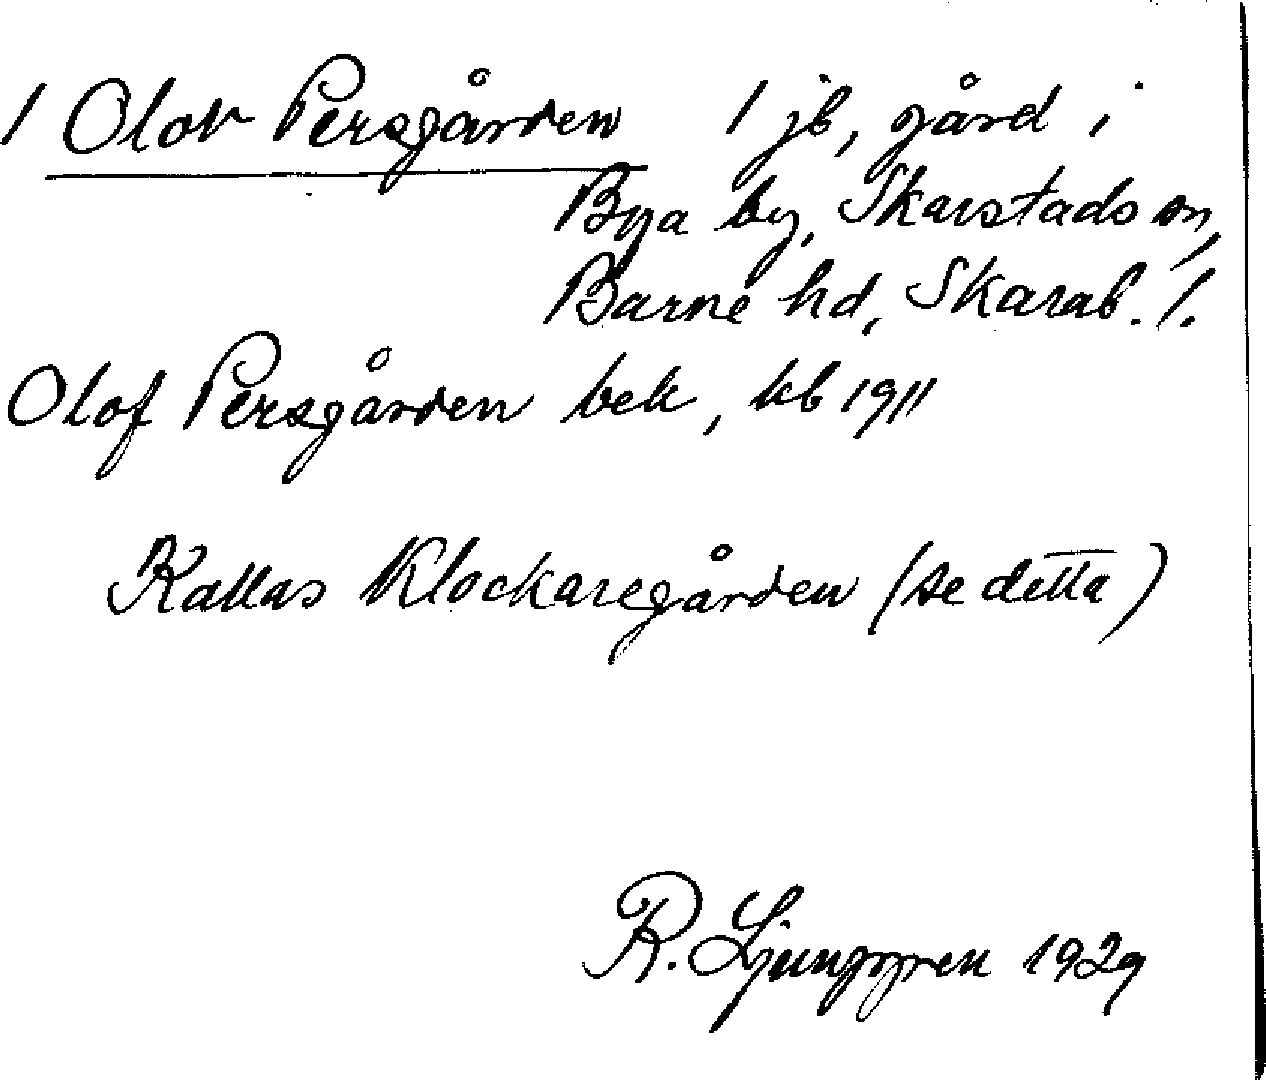 / Olov Persgården / jb, gård i
Bya by, Skarstads sn,
Barne hd, Skarab. l.
Olof Persgården bek, kb 1911
Kallas Klockaregården (se detta)
R. Ljunggren 1929